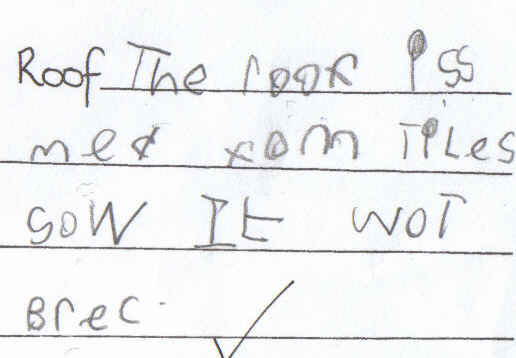 Roof The roof iss
med fom Tiles
sow It woT
Brec.